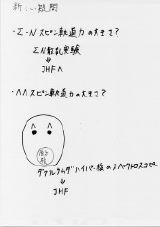 新しい疑問
・Σ-Nスピン軌道力の大きさ？
ΣN散乱実験
JHF へ
・ΛΛスピン軌道力の大きさ？
Λ Λ
原子核
ダブルラムダハイパー核のγスペクトロスコピー
JHF